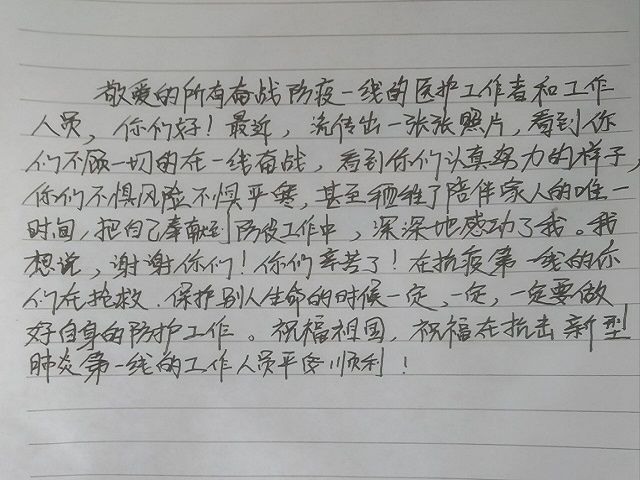 敬爱的所有奋战防疫一线的医护工作者和工作
人员，你们好！最近，流传出一张张照片，看到你
们不顾一切的在一线奋战，看到你们认真努力的样子，
你们不惧风险不惧严寒，甚至牺牲了陪伴家人的唯一
时间，把自己奉献到防役工作中，深深地感动了我。我
想说，谢谢你们！你们辛苦了！在抗疫第一线的你
们在抢救.保护别人生命的时候一定，一定，一定要做
好自身的防护工作。祝福祖国，祝福在抗击新型
肺炎第一线的工作人员平安顺利！